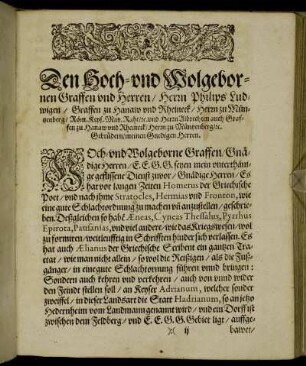 Den Hoch- vnd Wolgebor-
nen Graffen vnd Herren / Herrn Philips Lud-
wigen / Graffen zu Hanaw vnd Rheineck / Herrn zu Mün-
tzenberg / Röm. Keys. May. Rahte: and Herrn Albrechten auch Graf-
fen zu Hanaw vnd Rheineck / Herrn zu Müntzenberg / ꝛc.
Gebrüdern / meinen Gnedigen Herren.
HOch vnd Wolgeborne Graffen / Gnä-
dige Herren / E. E. G. G. seyen mein vnterthäni-
ge geflissene Dienst zuvor / Gnädige Herren / Es
hat vor langen Zeiten Homerus der Griechische
Poet / vnd nach ihme Stratocles, Hermias vnd Fronton, wie
eine gute Schlachordnung zu machen vñ anzustellen / geschrie-
ben. Deßgleichen so hab Æneas, Cyneas Thessalus, Pyrrhus
Epirota, Pausanias, vnd viel andere / wie das Kriegswesen / wol
zu formiren / weitleufftig in Schrifften hinder sich verlassen. Es
hat auch Ælianus der Griechische Scribent ein gantzen Tra-
ctat / wie man nicht allein / so wol die Reisigen / als die Fuß-
gänger / in eine gute Schlachtordnung führen vnnd bringen:
Sondern auch kehren vnd verkehren / auch von vnnd wider
den Feindt stellen soll / an Keyser Adrianum, welcher sonder
zweiffel / in dieser Landtsart die Statt Hadrianum, so an jetzo
Hedernheim vom Landtmann genannt wird / vnd ein Dorff ist
zwischen dem Feldberg / vnd E. E. G. G. Gebiet ligt / auffge-
ij
bawet /